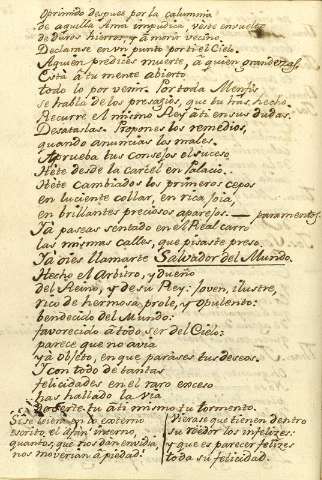 Oprimido despues por la calumnia
de aquella Ama impudica, y iste envuelto
de duros hierros, y à morir vecino.
Declarase en un punto por ti el Cielo.
A quien predices muerte, à quien grandezas.
Està à tu mente abierto
todo lo por venir. Por toda Menfis
se habla de los presagios, que tu has hecho.
Recurre el mismo Rey à ti en sus dudas.
Desatas las. Propones los remedios,
quando anuncias los males.
Aprueba tus consejos el suceso
Hete desde la carcel en Palacio.
Hete cambiados los primeros cepos
en luciente collar, en rica joia,
en brillantes preciosos aparejos. — paramentos
Ya paseas sentado en el Real carro
las mismas calles, que pisaste preso.
Ya oies llamarte Salvador del Mundo.
Hecho el Arbitro, y dueño
del Reino, y de su Rey: Joven, ilustre,
rico de hermosa prole, y opulento:
bendecido del Mundo:
favorecido à todo ser del Cielo:
parece que no avia
yà objeto, en que parases tus deseos.
Y con todo de tantas
felicidades en el raro exceso
has hallado la via
de serte tu à ti mismo tu tormento.
Si se leiera en lo externo
escrito el afan interno,
quantos, que nos dan envidia,
nos moverian à piedad!
Vierase que tienen dentro
su reedor los infelizes:
y que es parecer felizes
toda su felicidad.